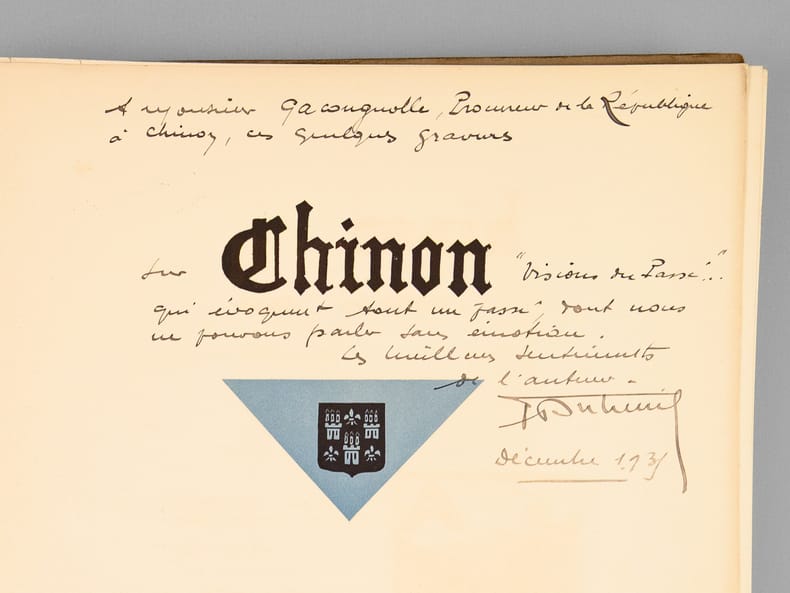 A Monsieur Gacougnolle, Procureur de la République
à Chinon, ces quelques gravures
sur Chinon "Visions du Passé"..
qui évoquent tout un passé, dont nous
ne pouvons parler sans émotion.
Les meilleurs sentiments
de l'auteur.
Décembre 193